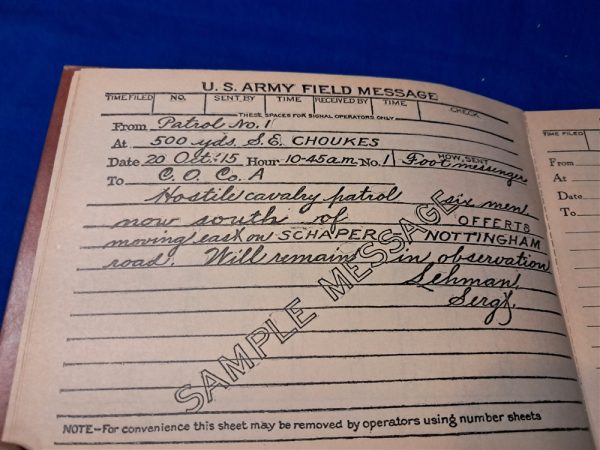 U.S. ARMY FIELD MESSAGE
TIME FILED NO. SENT BY TIME RECEIVED BY TIME CHECK
THESE SPACES FOR SIGNAL OPERATORS ONLY
From Patrol No. 1
At 500 yds. S.E. CHOUKES
HOW SENT
Date 20 Oct. '15 Hour 10-45 am No. 1 Foot messenger
To C. O. Co. A
Hostile cavalry patrol six men,
now south of OFFERTS
moving east on SCHAPER NOTTINGHAM
road. Will remain in observation
Lehman,
Sergt.
SAMPLE MESSAGE
NOTE-For convenience this sheet may be removed by operators using number sheets
TIME FILED
From
At
Date
To